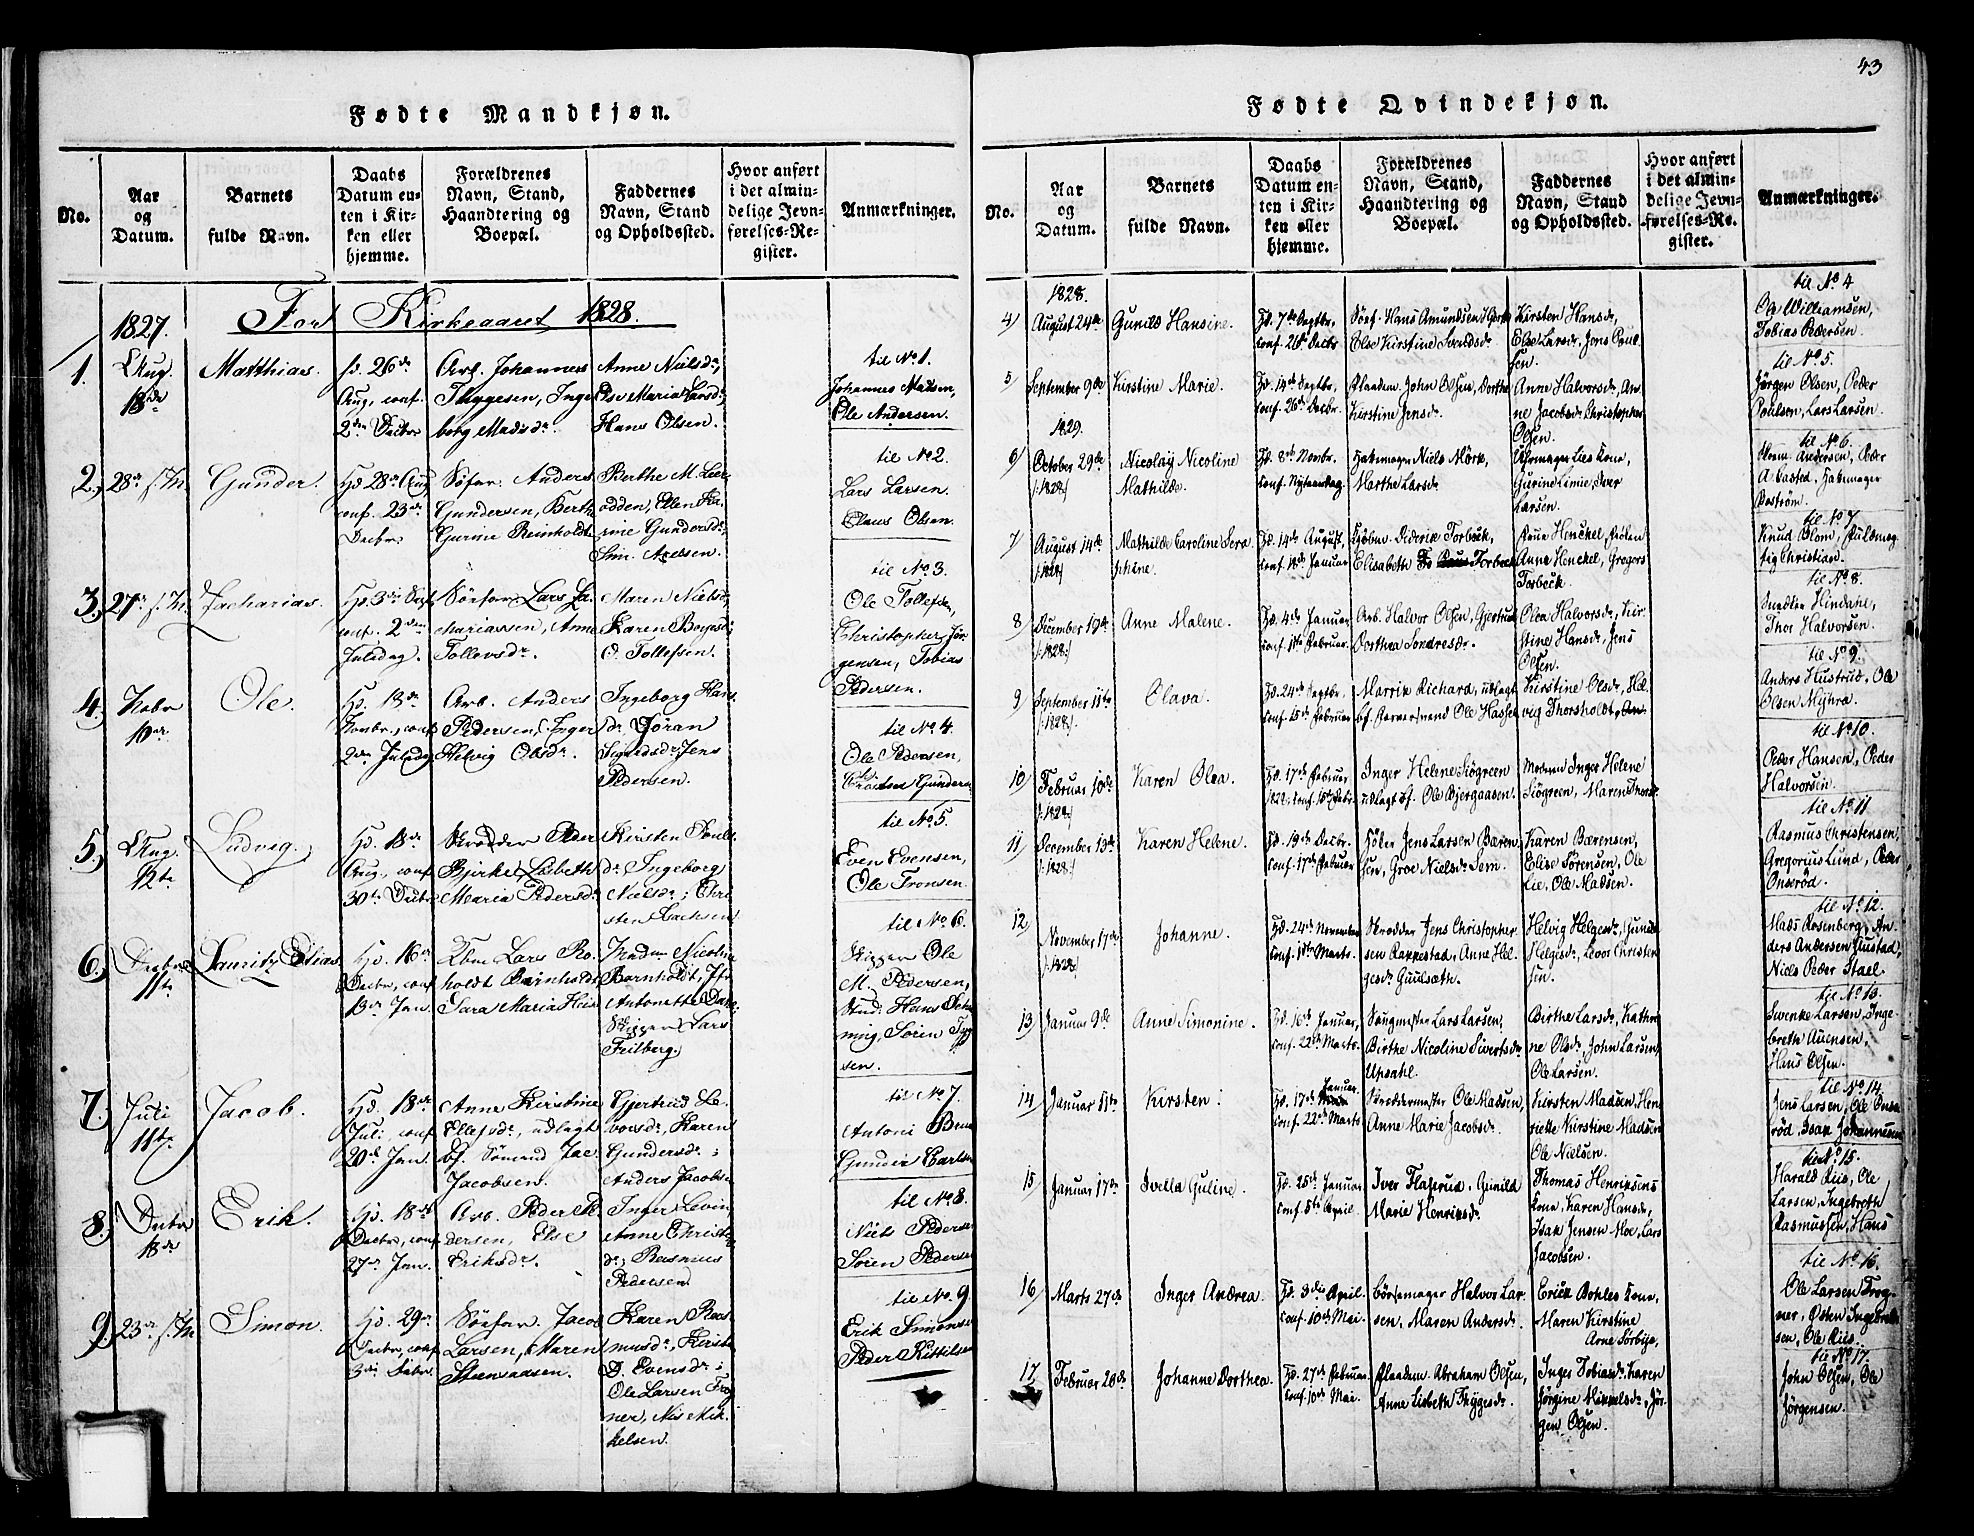 43
Fødte Mandkjøn.
No.
Aar og Datum.
Barnets fulde Navn.
Daabs Datum enten i Kirken eller hjemme.
Forældrenes Navn, Stand, Haandtering og Boepæl.
Faddernes Navn, Stand og Opholdssted.
Hvor anført i det almindelige Jevnførelses-Register.
Anmærkninger.
1827.
For Kirkeaaret 1828.
1.
Aug.
18de
Matthias.
26de
Aug, conf.
2den Decbr
Arb. Johannes
Thygesen, Inge
borg Madsdr.
Anne Nielsdr,
Else Maria Larsdr,
Hans Olsen.
til No 1.
Johannes Madsen,
Ole Andersen.
2.
Gunder.
Hd 28de Aug
conf. 23de
Decbr
Anders
Gundersen, Berthe
Gurine Reinholdt
Berthe M. Lar
Ellen Ka
rine Gundersdr,
til No 2.
Lars Larsen.
Claus Olsen.
3.
Zacharias.
conf. 2den
Juledag.
Søefar. Lars Za
chariassen, Anne
Tollevsdr.
Maren Nielsdr,
O. Tollefsen.
til No 3.
Ole Tollefsen,
Christopher Jør
gensen, Tobias
Pedersen.
4.
Novbr
10de
Ole.
Hd. 18de
Novbr, conf
2den Juledag
Arb. Anders
Pedersen, Inger
Helvig Olsdr.
Ingeborg Hans
dr, Jøran
Sigurdsdr, Jens
Pedersen.
til No 4
Ole Pedersen,
5.
Aug.
12te
Ludvig.
Hd. 18de
Aug, conf
30te Decbr
Skrædder Peder
Bjerke, Lisbeth
Maria Pedersdr
Kirsten Pouls
dr, Ingeborg
Nielsdr, Chri
sten Isachsen
til No 5.
Even Evensen,
Ole Tronsen.
6.
Decbr
11te
Lauritz Elias.
Hd. 16de
Decbr, conf
13de Jan
Lars Bo
holdt Barnholdt
Sara Maria Hei
Nicolina
Barnholdt, Jfr
Antonette
Skipper Lars
Feilberg.
til No 6.
Skipper Ole
M. Pedersen,
Stud. Hans
Søren
7.
Juli
11te
Jacob.
Hd. 18de
Juli, conf
20de Jan.
Anne Kirstine
Ellefsdr, udlagt
bf. Sømand Jac
Jacobsen.
Gjertrud Le
vorsdr, Karen
Gundersdr;
Anders Jacobsen
til No 7.
Antoni
Gunder Carlsen
8.
Decbr
18de
Erik.
Hd. 18de
Decbr, conf
27de Jan.
Arb. Peder Pe
dersen, Else
Eriksdr.
Inger Levin
Anne Christ
dr; Rasmus
Pedersen
til No 8.
Niels Pedersen
Søren Pedersen
9.
Simon.
Hd. 29de
Decbr, conf
3die Febr.
Søefar. Jacob
Larsen, Maren
Steensaasen.
Karen Ras
musdr, Kirsti
D. Evensdr;
Ole Larsen Frog
ner, Nis Mik
kelsen.
til No 9.
Erik Simonsen
Peder Kittilsen
Fødte Qvindekjøn.
No.
Aar og Datum.
Barnets fulde Navn.
Daabs Datum enten i Kirken eller hjemme.
Forældrenes Navn, Stand, Haandtering og Boepæl.
Faddernes Navn, Stand og Opholdssted.
Hvor anført i det almindelige Jevnførelses-Register.
Anmærkninger.
1828.
4)
August 24de
Gunild Hansine.
Hd. 7de Septbr,
conf. 26de Octbr
Søef. Hans Amundsen
Else Kirstine Svendsdr
Kirsten Hansdr,
Else Larsdr, Jens Poul
sen.
til No 4
Ole Williamsen,
Tobias Pedersen.
5)
September 9de
Kirstine Marie.
Hd. 14de Septbr,
conf. 26de Decbr.
John Olsen, Dorthe
Kirstine Jensdr.
Anne Halvorsdr, An
ne Jacobsdr, Christopher
Olsen.
til No 5.
Jørgen Olsen, Peder
Poulsen, Lars Larsen.
1829.
6)
October 29de
/:1828:/
Nicolay Nicoline
Mathilde.
Hd. 8de Novbr.
conf. Nytaarsdag.
Niels Mörk,
Marthe Larsdr
Uhrmager Lies Kone,
Gurine Linie, Iver
Larsen.
til No 6.
Andersen, Peder
7)
August 14de
/:1828:/
Mathilde Caroline Sera
phine.
Hd. 14de August,
conf. 18de Januar
Kjøbm. Diderik Forbech,
Elisabeth
Anne Henckel, Gregers
Forbech.
til No 7
Knud Blom, Fuldmæg
tig Christian.
8)
December 19de
/:1828:/
Anne Malene.
Hd. 4de Januar
conf. 1ste Februar.
Arb. Halvor Olsen, Gjertrud
Dorthea Sondresdr.
Olea Halvorsdr, Kir
stine Hansdr, Jens
Olsen.
til No 8.
Hindahl,
Thor Halvorsen.
9)
September 11te
/:1828:/
Olava.
Hd. 24de Septbr.
conf. 15de Februar
Marrie Richard, udlagt
bf. Ole Hassel
Kirstine Olsdr, Hel
vig Thorsholdt.
til No 9.
Anders Hustrud, Ole
Olsen Myhra.
10)
Februar 10de
/:1828:/
Karen Olea.
Hd. 17de Februar
1828, conf. 15de Febr.
Inger Helene Siögreen
udlagt bf. Ole Bjergaasen.
Moderen Inger Helene
Siögreen, Maren Thorsdr
til No 10.
Peder Hansen, Peder
Halvorsen.
11)
December 13de
/:1828:/
Karen Helene.
Hd. 19de Decbr.
conf. 17de Februar
Jens Larsen Bæren
sen, Groe Nielsdr Sem.
Karen Bærensen,
Elise Sørensen, Ole
Lie, Ole Madsen.
til No 11
Rasmus Christensen
Gregorius Lund, Peder
Onsrød.
12)
November 17de
/:1828:/
Johanne.
Hd. 24de November
conf. 1ste Marts
Skrædder Jens Christopher
sen Rappestad, Anne Hel
gesdr Guulsæth.
Helvig Helgesdr, Gunild
Helgesdr, Levor Christen
sen.
til No 12.
Mads Rosenberg, An
ders Andersen Hustad,
Niels Peder Stael
13)
Januar 9de
Anne Simonine.
Hd. 16de Januar,
conf. 22de Marts
Saugmester Lars Larsen,
Birthe Nicoline Sivertsdr
Upsahl.
Birthe Larsdr, Kathri
ne Olsdr, John Larsen,
Ole Larsen.
til No 13.
Svenke Larsen, Inge
breth Auensen,
Hans Olsen.
14)
Januar 11te
Kirsten.
Hd. 17de Januar
conf. 22de Marts
Ole Madsen,
Anne Marie Jacobsdr.
Kirsten Madsen, Hen
riette Kirstine Madsen
Ole Nielsen.
til No 14.
Jens Larsen, Ole Ons
rød, Isak Johannesen
15)
Januar 17de
Ivella Guline.
Hd. 25de Januar
conf. 5te April.
Iver Flaterud, Gunild
Marie Henriksdr.
Thomas Henriksens
Kone, Karen Hansdr,
Isak Jensen Moe, Lars
Jacobsen.
til No 15.
Harald Riis, Ole
Larsen, Ingebreth
Rasmussen, Hans
16)
Marts 27de
Inger Andrea.
Hd. 3die April.
conf. 10de Mai.
Børsemager Halvor Lar
sen, Maren Andersdr.
Erick Bohles Kone,
Maren Kirstine
Arne Sørbye,
til No 16.
Ole Larsen Frog
ner, Østen Ingebreth
sen, Ole Riis.
17)
Februar 20de
Johanne Dorthea.
Hd. 27de Februar
conf. 10de Mai.
Abraham Olsen,
Anne Lisbeth Thygesdr.
Inger Tobiasdr, Karen
Jørgine Mikkelsdr, Jør
gen Olsen.
til No 17.
John Olsen, Ole
Jørgensen.